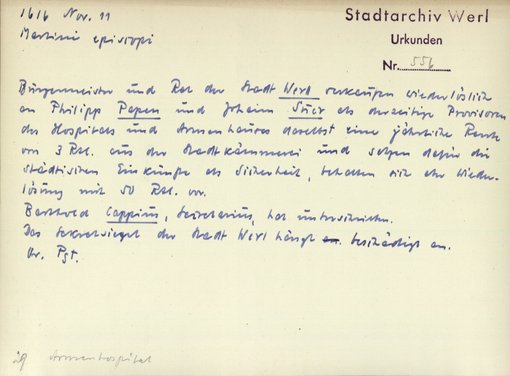 1616 Nov. 11
Martini episcopi
Stadtarchiv Werl
Urkunden
Nr. 556
Bürgermeister und Rat der Stadt Werl verkaufen wiederlöslich
an Philipp Papen und Johann Stier als derzeitige Provisoren
des Hospitals und Armenhauses daselbst eine jährliche Rente
von 3 Rtl. aus der Stadtkämmerei und setzen dafür die
städtischen Einkünfte als Sicherheit, behalten sich die Wieder-
lösung mit 50 Rtl. vor.
Barthold Cappius, Secretarius, hat unterschrieben.
Das Sekretsiegel der Stadt Werl hängt beschädigt an.
Or. Pgt.
29 Armenhospital